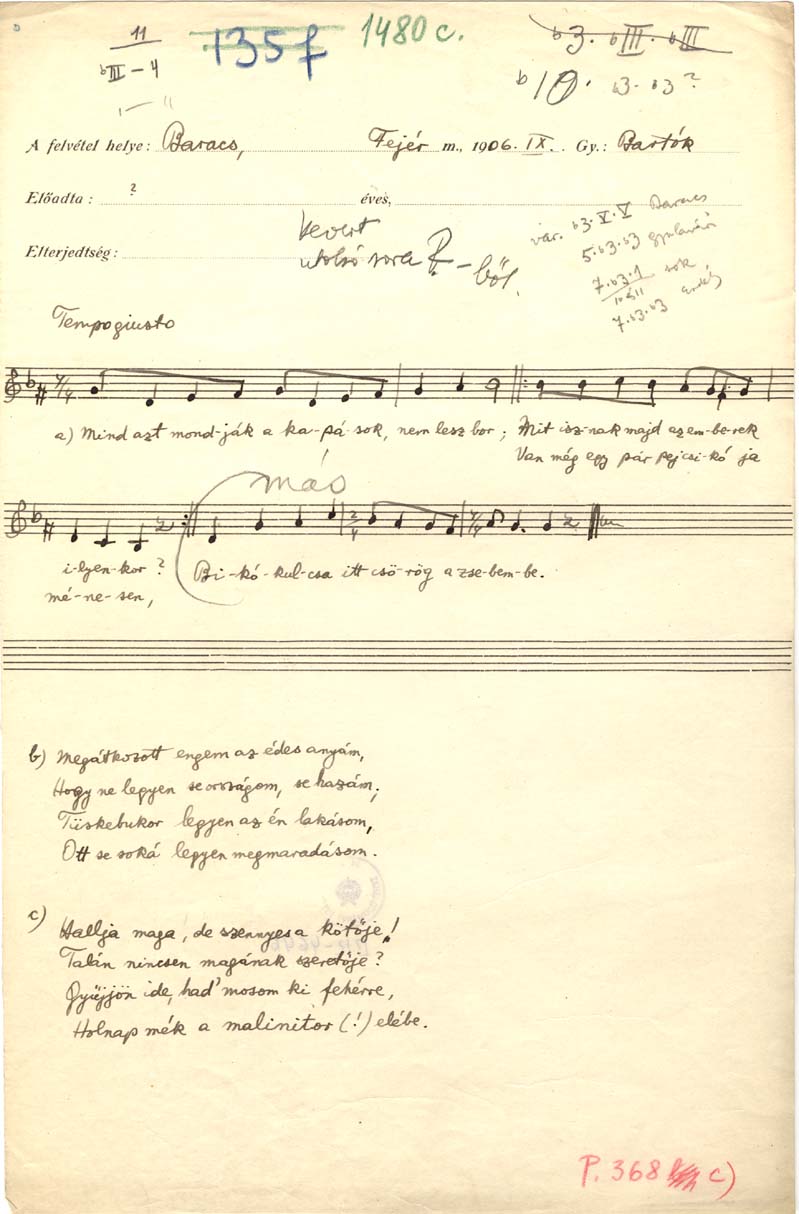 11
bIII-4
135f
1480 c.
b3. bIII. bIII
b10. b3. b3?
A felvétel helye: Baracs, Fejér m., 1906. IX. Gy.: Bartók
Előadta: ? éves,
Elterjedtség:
kevert
utolsó sora -ből.
vár. b3. V. V Baracs
5. b3. b3
7. b3. 1 sok,
7. b3. b3 Erdély
Tempo giusto
a) Mind azt mond-ják a ka-pá-sok, nem lesz bor; Mit isz-nak majd az em-be-rek
Van még egy pár pej csi-kó ja
más
i-lyen-kor? Bi-kó-kul-csa itt csö-rög a zse-bem-be.
mé-ne-sen,
b) Megátkozott engem az édes anyám,
Hogy ne legyen se országom, se hazám;
Tüskebukor legyen az én lakásom,
Ott se soká legyen megmaradásom.
c) Hallja maga, de szennyes a kötője!
Talán nincsen magának szeretője?
Gyüjjön ide, had' mosom ki fehérre,
Holnap mék a malinitor (!) elébe.
P. 368 c)